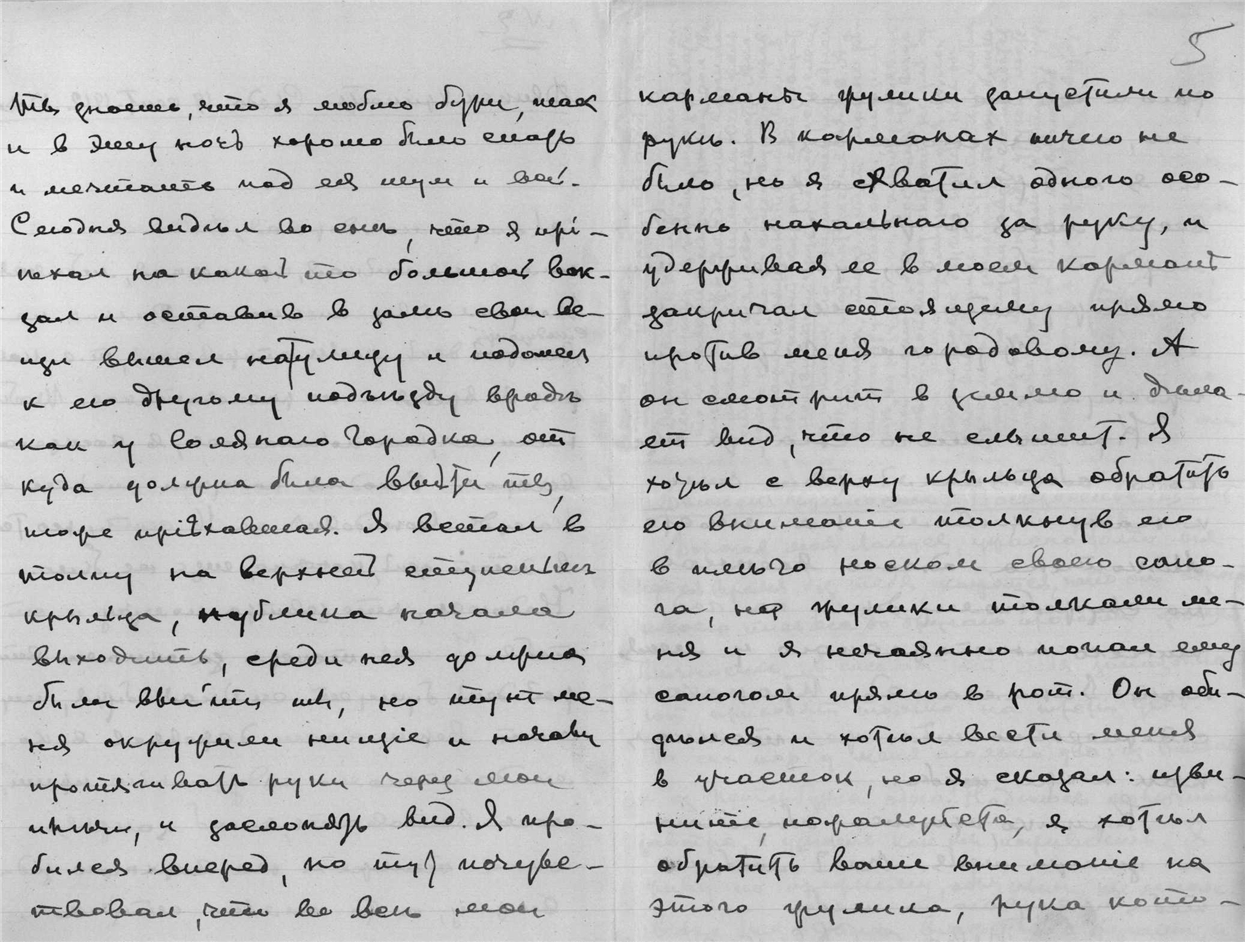 5
Ты знаешь, что я люблю бури, так
и в эту ночь хорошо было спать
и мечтать под ея шум и вой.
Сегодня видѣл во снѣ, что я прі-
ѣхал на какой то большой вок-
зал и оставив в залѣ свои ве-
щи вышел на улицу и подошел
к его другому подъѣзду вродѣ
как у Соляного Городка, от
куда должна была выйти ты,
тоже пріѣхавшая. Я встал в
толпу на верхней ступенькѣ
крыльца, публика начала
выходить, среди нея должна
была выйти ты, но тут ме-
ня окружили нищіе и начали
протягивать руки через мои
плечи, и заслонять вид. Я про-
бился вперед, но тут почувс-
твовал, что во всѣ мои
карманы жулики запустили по
рукѣ. В карманах ничего не
было, но я схватил одного осо-
бенно нахального за руку, и
удерживая ее в моем карманѣ
закричал стоящему прямо
против меня городовому. А
он смотрит в землю и дѣла-
ет вид, что не слышит. Я
хотѣл с верху крыльца обратить
его вниманіе толкнув его
в плечо носком своего сапо-
га, но жулики толкали ме-
ня и я нечаянно попал ему
сапогом прямо в рот. Он оби-
дѣлся и хотѣл вести меня
в участок, но я сказал: изви-
ните, пожалуйста, я хотѣл
обратить ваше вниманіе на
этого жулика, рука кото-